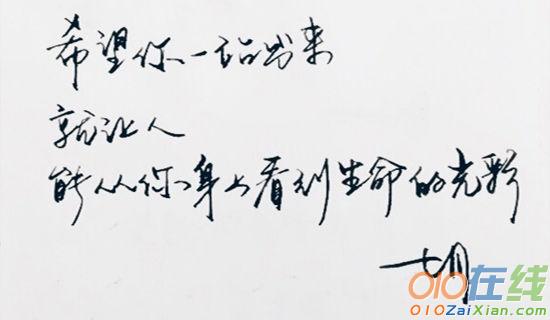 希望你一站出来
就让人
能从你身上看到生命的光彩
十月
010在线
010ZaiXian.com